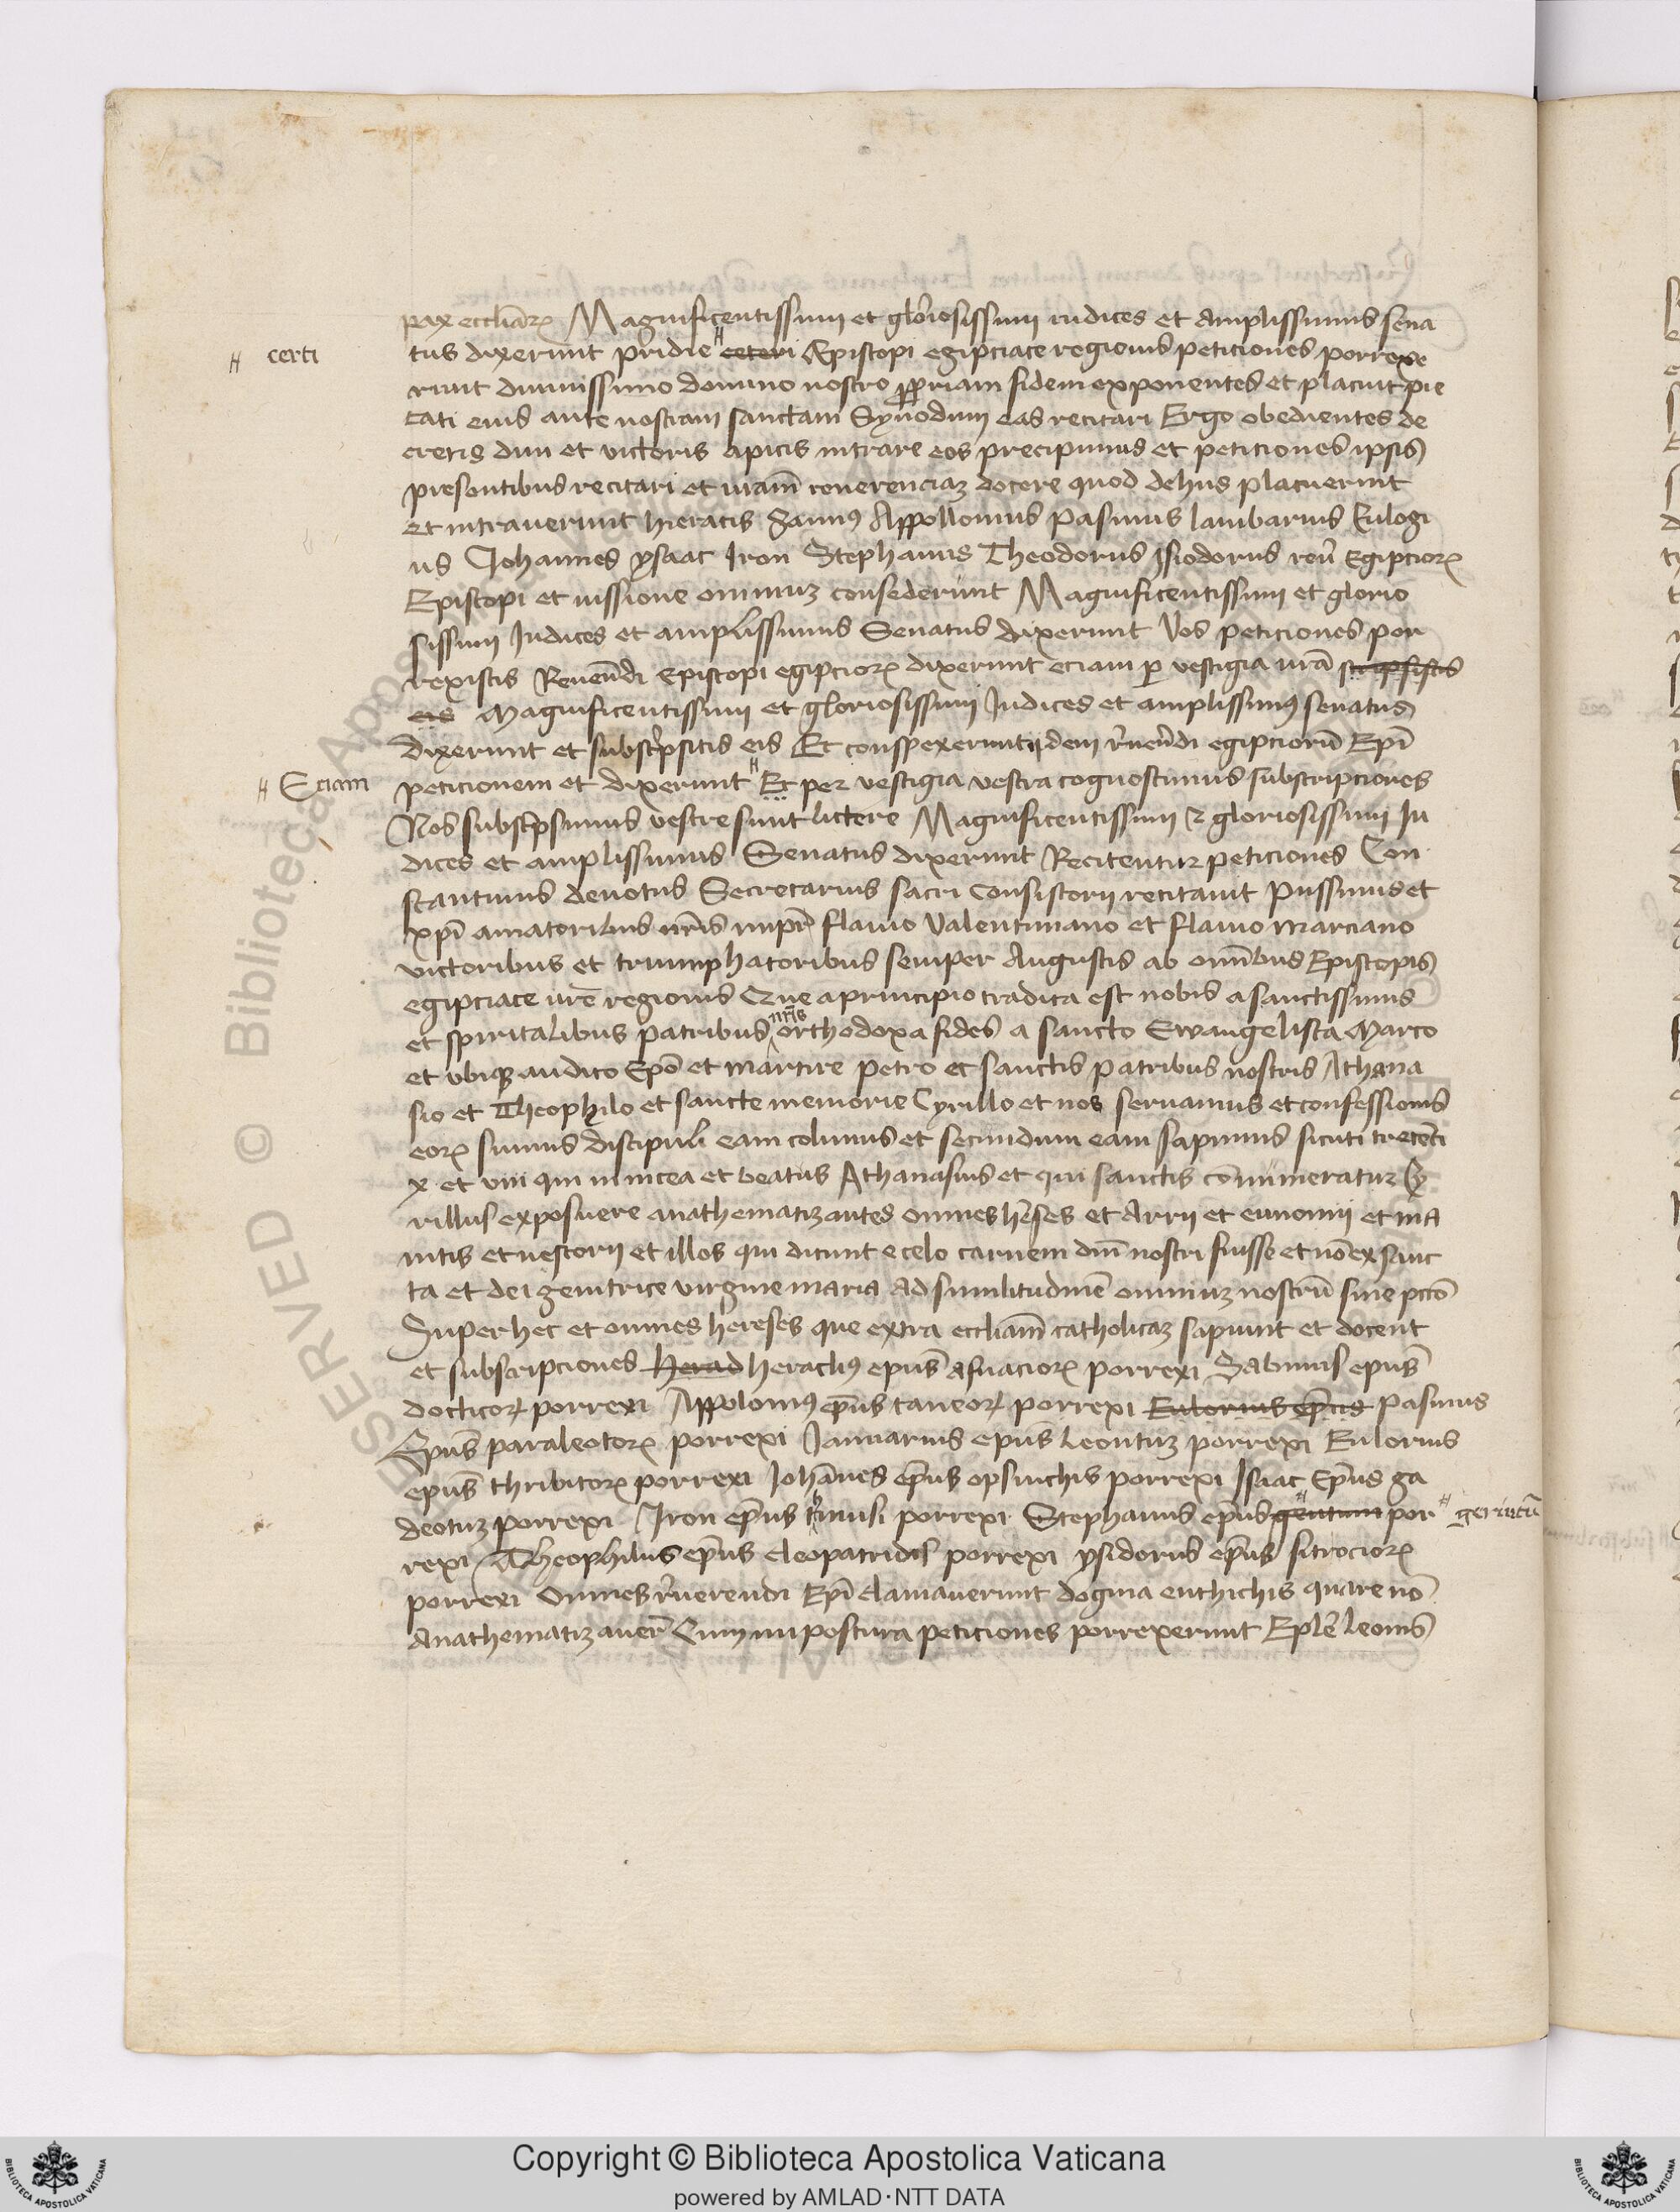 pax eccliaꝝ Magnificentissimi et gloriosissimi iudices et amplissimus sena
tus dixerunt pridie ceteri Episcopi egipciace regionis peticiones porrexe
certi
runt diuinissimo domino nostro ꝓpriam fidem exponentes et placuit pie
tati eius ante nostram sanctam Synodum eas recitari Ergo obedientes de
cretis diui et victoris apicis intrare eos precipimus et peticiones ipsis
presentibus recitari et vram̄ reuerenciaꝫ docere quod de hiis placuerint
et intrauerunt hieracis Appollonius Pasmius Ianuarius Eulogi
us Johannes ysaac Iron Stephanus Theodorus Isiodorus reū Egipcioꝝ
Episcopi et iussione omniuꝫ consederunt Magnificentissimi et glorio
sissimi Iudices et amplissimus Senatus dixerunt Vos peticiones por
rexistis Reuen̄di Episcopi egipcioꝝ dixerunt eciam ꝑ vestigia vrā scripsistis
eis Magnificentissimi et gloriosissimi Iudices et amplissimꝰ senatus
dixerunt et subscripsitis eis Et conspexerunt iidem r̄uen̄di egipciorū Epī
peticionem et dixerunt Et per vestigia vestra cognoscimus subscripciones
Eciam
Nos subscripsimus vestre sunt littere Magnificentissimi ⁊ gloriosissimi Iu
dices et amplissimus Senatus dixerunt Recitentur peticiones Con
stantinus deuotus Secretarius sacri Consistorii recitauit Piissimis et
xpī amatoribus nr̄is impr̄ flauio Valentiniano et flauio Marciano
victoribus et triumphatoribus semper Augustis ab omībus Episcopis
egipciace vrē regionis Que a principio tradita est nobis a sanctissimis
et spiritalibus patribus nr̄is orthodoxa fides a sancto Ewangelista Marco
et vbiqꝫ audito Epō et martire Petro et sanctis patribus nostris Athana
sio et Theophilo et sancte memorie Cyrillo et nos seruamus et confessionis
eoꝝ sumus discipuli eam colimus et secundum eam sapimus sicuti trecēti
x et viii qui in nicea et beatus Athanasius et qui sanctis cōnumeratur Cy
rillus exposuere anathematizantes omnes heseses et Arrii et eunomii et ma
nitis et nestorii et illos qui dicunt e celo carnem dn̄i nostri fuisse et nō ex sanc
ta et dei genitrice virgine maria ad similitudinē omniuꝫ nostrū sine pccō
Super hec et omnes hereses que extra eccliam̄ catholicaꝫ sapiunt et docent
et subscripciones Herad heraclꝰ epūs afnacioꝝ porrexi Sabinus epūs
docticoꝝ porrexi Appoloniꝰ ep̄us taneoꝝ porrexi Eulorius ep̄us Pasmius
Epūs paraleotoꝝ porrexi Ianuarius epūs leontuꝫ porrexi Eulorius
epūs thribitoꝝ porrexi Iohānes ep̄us opsinchis porrexi Isaac Ep̄us ga
deotuꝫ porrexi Iron ep̄us porrexi Stephanus ep̄us gentum por
gerutū
rexi Theophilus ep̄us cleopatridis porrexi ysidorus ep̄us sitrocioꝝ
porrexi Omnes r̄uerendi Epī clamauerunt dogma euthichis quare nō
Anathematizauer̄ Cum impostura peticiones porrexerunt Eplē leonis
Copyright © Biblioteca Apostolica Vaticana
powered by AMLAD·NTT DATA